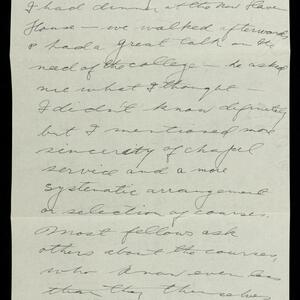 I had dinner at the New Haven
House – we walked afterwards
& had a great talk on the
need of the college – he asked
me what I thought –
I didn't know definitely
but I mentioned more
sincerity of chapel
service and a more
systematic arrangement
or selection of courses.
Most fellows ask
others about the courses,
who know even less
than they themselves